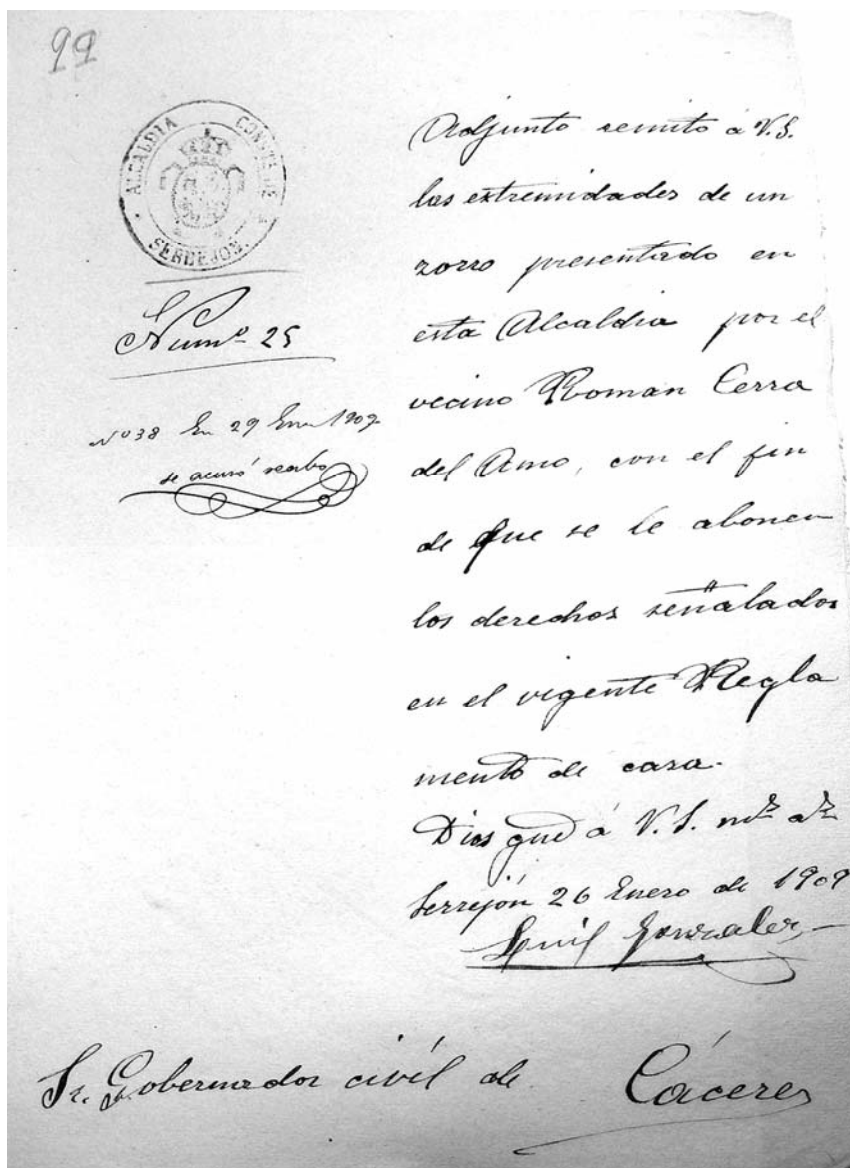 99
ALCALDIA CONSTAL DE
SERREJON.
Numº 25
Nº 38 En 29 Enero 1909
se acusó recibo
Adjunto remito á V.S.
las extremidades de un
zorro presentado en
esta Alcaldia por el
vecino Roman Cerro
del Amo, con el fin
de que se le abonen
los derechos señalados
en el vigente Regla
mento de caza.
Dios gue á V.S. ms as
Serrejón 26 Enero de 1909
Gonzalez
Sr. Gobernador civil de Cáceres